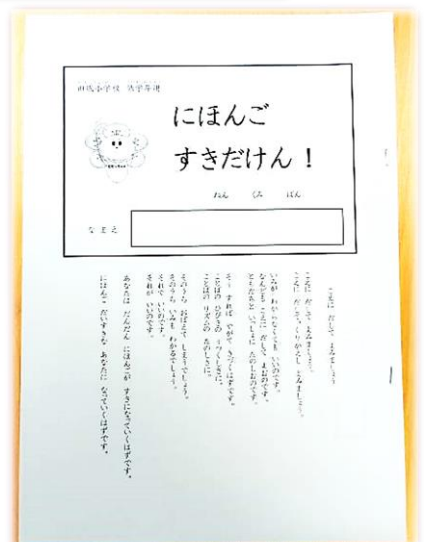 にほんご
すきだけん！
ねん　くみ　ばん
なまえ
こえに だして よみましょう
こえに だして よみましょう。
こえに だして、くりかえし よみましょう。
いみが わからなくても いいのです。
なんども こえに だして よむのです。
ともだちと いっしょに たのしむのです。
そう すれば やがて きづくはずです。
ことばの ひびきの うつくしさに。
ことばの リズムの たのしさに。
そのうち おぼえて しまうでしょう。
そのうち いみも わかるでしょう。
それで いいのです。
それが いいのです。
あなたは だんだん にほんごが すきになっていくはずです。
にほんご だいすきな あなたに なっていくはずです。